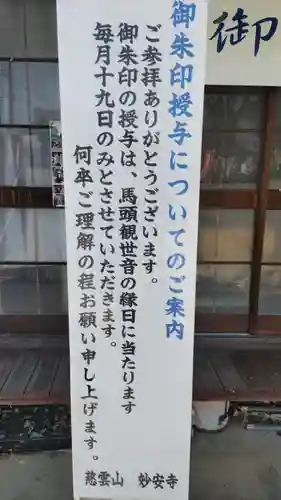 御朱印授与についてのご案内
ご参拝ありがとうございます。
御朱印の授与は、馬頭観世音の縁日に当たります
毎月十九日のみとさせていただきます。
何卒ご理解の程お願い申し上げます。
慈雲山　妙安寺
御